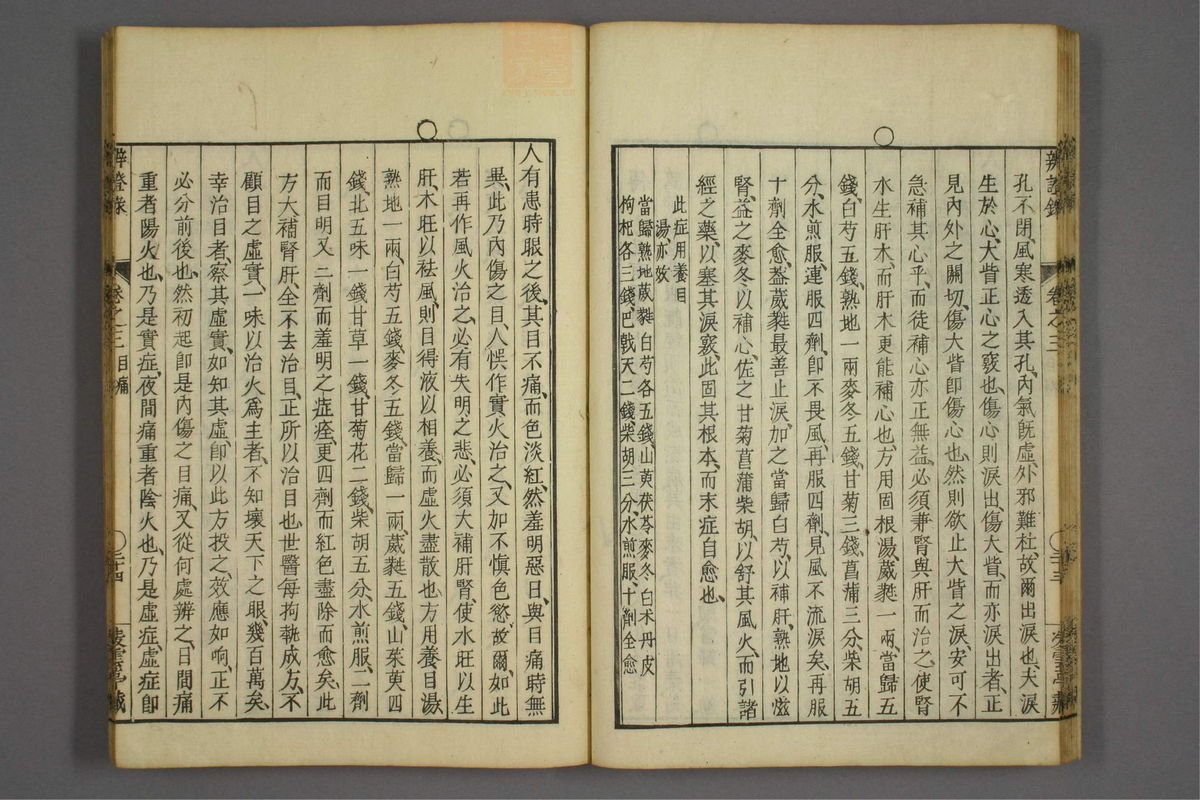 辨證錄
卷之三
三十三
孔不閉、風寒透入其孔、內氣旣虛、外邪難杜、故爾出淚也、夫淚
生於心、大眥正心之竅也、傷心則淚出、傷大眥、而亦淚出者、正
見內外之關切、傷大眥卽傷心也、然則欲止大眥之淚、安可不
急補其心乎、而徒補心亦正無益、必須兼腎與肝而治之、使腎
水生肝木、而肝木更能補心也、方用固根湯、葳蕤一兩、當歸五
錢、白芍五錢、熟地一兩、麥冬五錢、甘菊三錢、菖蒲三分、柴胡五
分、水煎服、連服四劑、卽不畏風、再服四劑、見風不流淚矣、再服
十劑全愈、葢葳蕤最善止淚、加之當歸白芍、以補肝、熟地以滋
腎、益之麥冬以補心、佐之甘菊菖蒲柴胡、以舒其風火、而引諸
經之藥、以塞其淚竅、此固其根本、而末症自愈也、
此症用養目
湯亦效
當歸熟地葳蕤白芍各五錢、山萸茯苓麥冬白术丹皮
枸杞各三錢、巴戟天二錢、柴胡三分、水煎服、十劑全愈
人有患時眼之後、其目不痛、而色淡紅、然羞明惡日、與目痛時無
異、此乃內傷之目、人悞作實火治之、又加不慎色慾、故爾、如此
若再作風火治之、必有失明之悲、必須大補肝腎、使水旺以生
肝、木旺以祛風、則目得液以相養、而虛火盡散也、方用養目湯、
熟地一兩、白芍五錢、麥冬五錢、當歸一兩、葳蕤五錢、山茱萸四
錢、北五味一錢、甘草一錢、甘菊花二錢、柴胡五分、水煎服、二劑
而目明、又二劑而羞明之症痊、更四劑而紅色盡除而愈矣、此
方大補腎肝、全不去治目、正所以治目也、世醫每拘執成方、不
顧目之虛實、一味以治火爲主者、不知壞天下之眼、幾百萬矣、
幸治目者、察其虛實、如知其虛、卽以此方投之、效應如响、正不
必分前後也、然初起卽是內傷之目痛、又從何處辨之、日間痛
重者陽火也、乃是實症、夜間痛重者陰火也、乃是虛症、虛症卽
辨證錄
卷之三 目痛
三十四